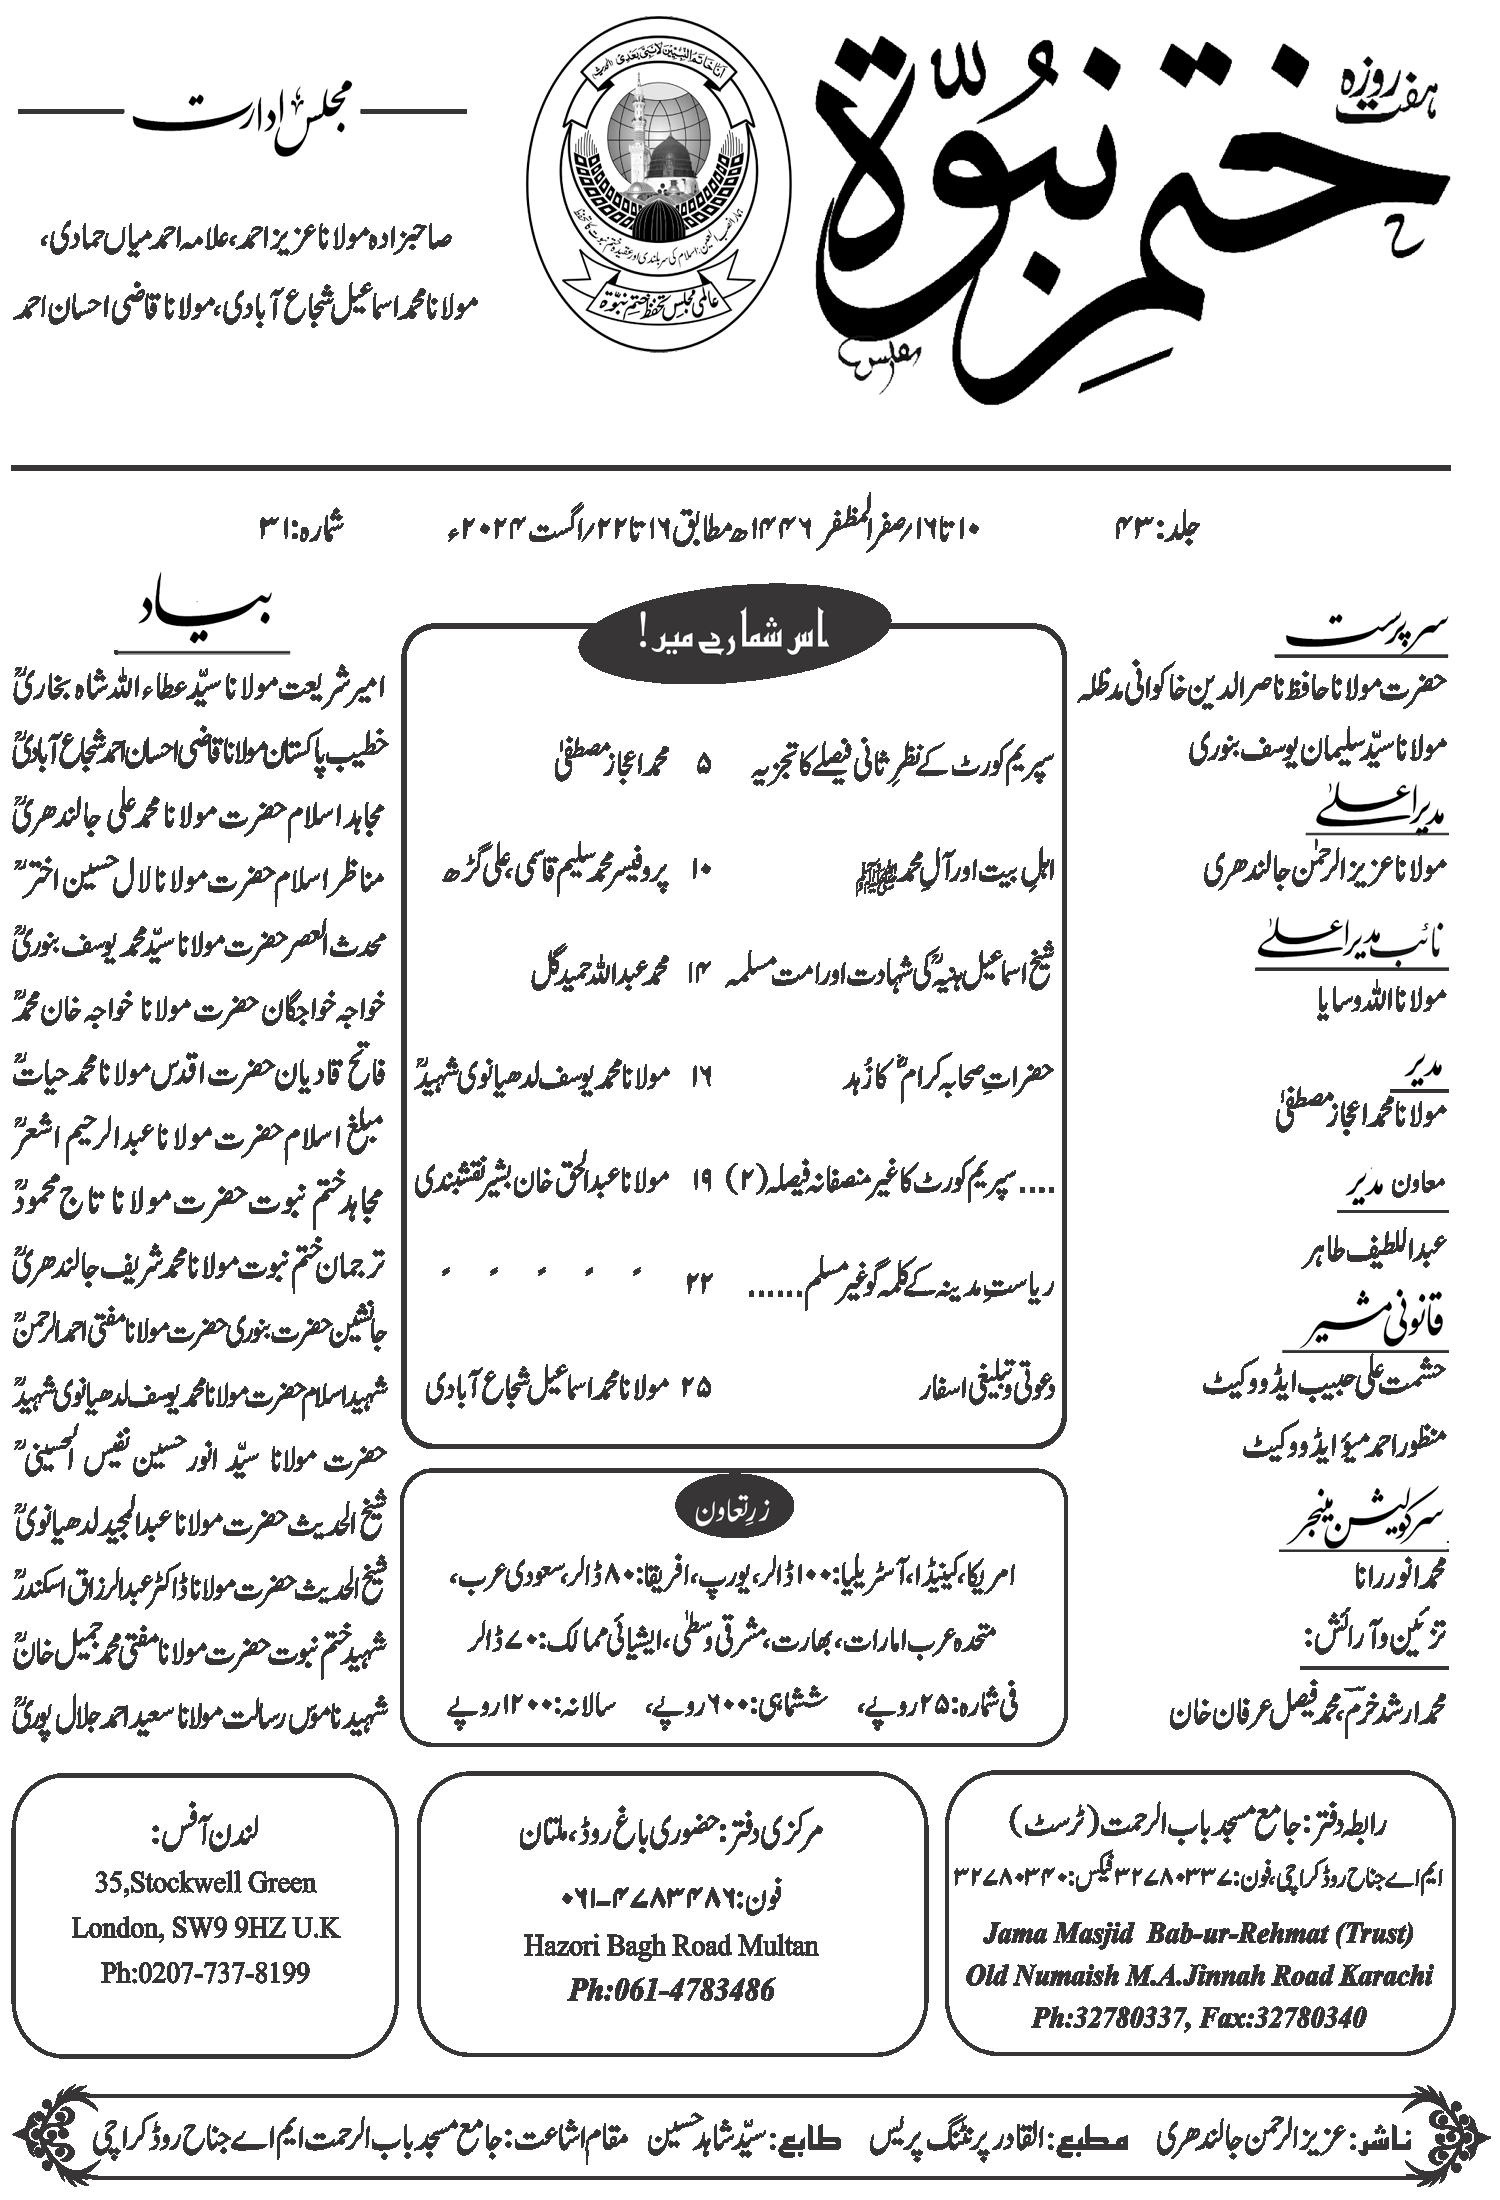 ہفت روزہ
ختم نبوّۃ
مجلس
انا خاتم النبیین لا نبی بعدی (الحدیث)
عالمی مجلس تحفظ ختم نبوّۃ
مجلس ادارت
صاحبزادہ مولانا عزیز احمد، علامہ احمد میاں حمادی،
مولانا محمد اسماعیل شجاع آبادی، مولانا قاضی احسان احمد
جلد: ۴۳ ۱۰ تا ۱۶؍ صفر المظفر ۱۴۴۶ھ مطابق ۱۶ تا ۲۲؍ اگست ۲۰۲۴ء شمارہ: ۳۱
سرپرست
حضرت مولانا حافظ ناصر الدین خاکوانی مدظلہ
مولانا سیّد سلیمان یوسف بنوری
مدیر اعلیٰ
مولانا عزیز الرحمٰن جالندھری
نائب مدیر اعلیٰ
مولانا اللہ وسایا
مدیر
مولانا محمد اعجاز مصطفیٰ
معاون مدیر
عبداللطیف طاہر
قانونی مشیر
حشمت علی حبیب ایڈووکیٹ
منظور احمد میؤ ایڈووکیٹ
سرکولیشن مینجر
محمد انور رانا
تزئین و آرائش:
محمد ارشد خرم، محمد فیصل عرفان خان
اس شمارے میں!
سپریم کورٹ کے نظرِ ثانی فیصلے کا تجزیہ ۵ محمد اعجاز مصطفیٰ
اہلِ بیت اور آلِ محمد ﷺ ۱۰ پروفیسر محمد سلیم قاسمی، علی گڑھ
شیخ اسماعیل ہنیہؒ کی شہادت اور امت مسلمہ ۱۴ محمد عبداللہ حمید گل
حضراتِ صحابہ کرامؓ کا زُہد ۱۶ مولانا محمد یوسف لدھیانوی شہیدؒ
.... سپریم کورٹ کا غیر منصفانہ فیصلہ (۲) ۱۹ مولانا عبدالحق خان بشیر نقشبندی
ریاستِ مدینہ کے کلمہ گو غیر مسلم...... ۲۲ ״ ״ ״ ״ ״
دعوتی و تبلیغی اسفار ۲۵ مولانا محمد اسماعیل شجاع آبادی
زرِ تعاون
امریکا، کینیڈا، آسٹریلیا: ۱۰۰ ڈالر، یورپ، افریقا: ۸۰ ڈالر، سعودی عرب،
متحدہ عرب امارات، بھارت، مشرقی وسطیٰ، ایشیائی ممالک: ۷۰ ڈالر
فی شمارہ: ۲۵ روپے، ششماہی: ۶۰۰ روپے، سالانہ: ۱۲۰۰ روپے
بیاد
امیر شریعت مولانا سیّد عطاء اللہ شاہ بخاریؒ
خطیب پاکستان مولانا قاضی احسان احمد شجاع آبادیؒ
مجاہد اسلام حضرت مولانا محمد علی جالندھریؒ
مناظر اسلام حضرت مولانا لال حسین اخترؒ
محدث العصر حضرت مولانا سیّد محمد یوسف بنوریؒ
خواجہ خواجگان حضرت مولانا خواجہ خان محمدؒ
فاتح قادیان حضرت اقدس مولانا محمد حیاتؒ
مبلغ اسلام حضرت مولانا عبدالرحیم اشعرؒ
مجاہد ختم نبوت حضرت مولانا تاج محمودؒ
ترجمان ختم نبوت مولانا محمد شریف جالندھریؒ
جانشین حضرت بنوری حضرت مولانا مفتی احمد الرحمنؒ
شہید اسلام حضرت مولانا محمد یوسف لدھیانوی شہیدؒ
حضرت مولانا سیّد انور حسین نفیس الحسینیؒ
شیخ الحدیث حضرت مولانا عبدالمجید لدھیانویؒ
شیخ الحدیث حضرت مولانا ڈاکٹر عبدالرزاق اسکندرؒ
شہید ختم نبوت حضرت مولانا مفتی محمد جمیل خانؒ
شہید ناموس رسالت مولانا سعید احمد جلال پوریؒ
رابطہ دفتر: جامع مسجد باب الرحمت (ٹرسٹ)
ایم اے جناح روڈ کراچی، فون: ۳۲۷۸۰۳۳۷ فیکس: ۳۲۷۸۰۳۴۰
Jama Masjid Bab-ur-Rehmat (Trust)
Old Numaish M.A.Jinnah Road Karachi
Ph:32780337, Fax:32780340
مرکزی دفتر: حضوری باغ روڈ، ملتان
فون: ۰۶۱-۴۷۸۳۴۸۶
Hazori Bagh Road Multan
Ph:061-4783486
لندن آفس:
35,Stockwell Green
London, SW9 9HZ U.K
Ph:0207-737-8199
ناشر: عزیز الرحمن جالندھری مطبع: القادر پرنٹنگ پریس طابع: سیّد شاہد حسین مقام اشاعت: جامع مسجد باب الرحمت ایم اے جناح روڈ کراچی